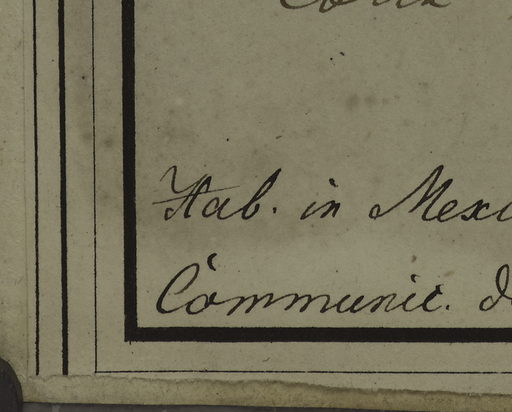 Hab. in Mexi
Communic. d